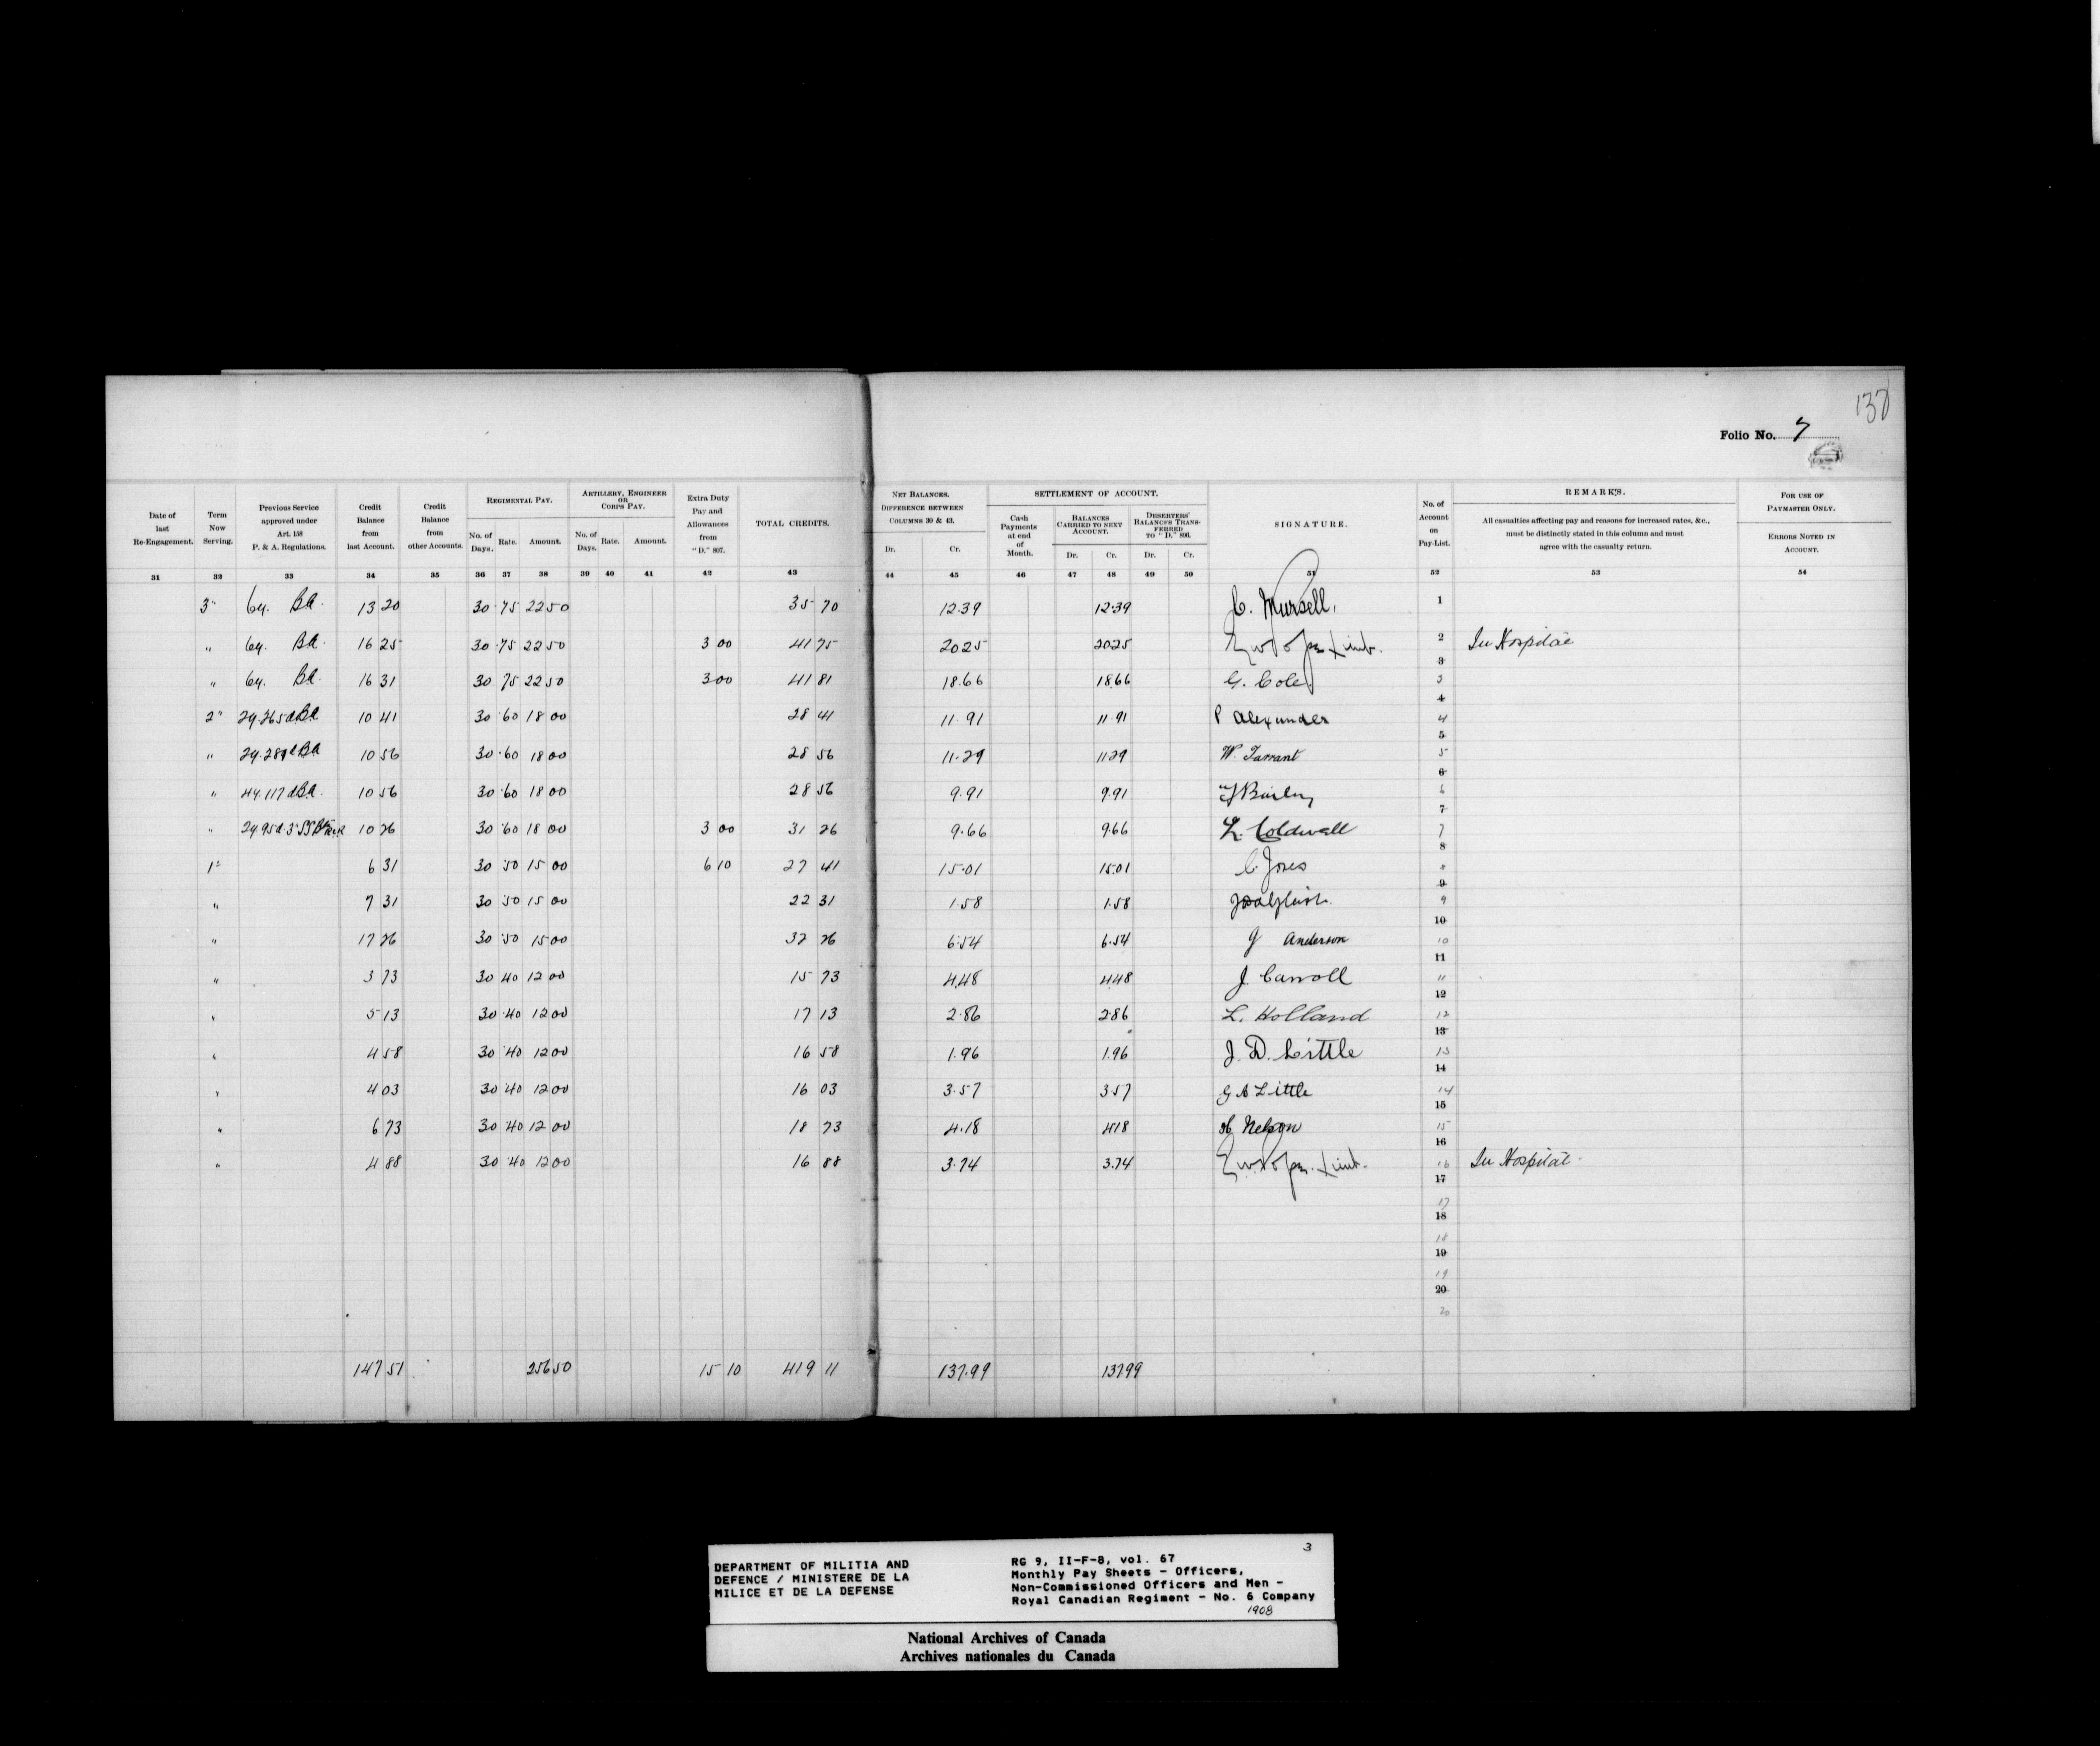 137
Folio No. 7
Date of last Re-Engagement.
Term Now Serving.
Previous Service approved under Art. 158 P. & A. Regulations.
Credit Balance from last Account.
Credit Balance from other Accounts.
REGIMENTAL PAY.
No. of Days. Rate. Amount.
ARTILLERY, ENGINEER OR CORPS PAY.
No. of Days. Rate. Amount.
Extra Duty Pay and Allowances from "D." 807.
TOTAL CREDITS.
NET BALANCES.
DIFFERENCE BETWEEN COLUMNS 30 & 43.
Dr. Cr.
SETTLEMENT OF ACCOUNT.
Cash Payments at end of Month.
BALANCES CARRIED TO NEXT ACCOUNT.
Dr. Cr.
DESERTERS' BALANCES TRANSFERRED TO "D." 806.
Dr. Cr.
SIGNATURE.
No. of Account on Pay-List.
REMARKS.
All casualties affecting pay and reasons for increased rates, &c., must be distinctly stated in this column and must agree with the casualty return.
FOR USE OF PAYMASTER ONLY.
ERRORS NOTED IN ACCOUNT.
31 32 33 34 35 36 37 38 39 40 41 42 43 44 45 46 47 48 49 50 51 52 53 54
3" 6y. BA. 13 20 30 .75 22 50 35 70 12.39 12.39 C. Mursell. 1
" 6y. BA. 16 25 30 .75 22 50 3 00 41 75 20 25 20 25 Lieut. 2 In Hospital
" 6y. BA. 16 31 30 75 22 50 3 00 41 81 18.66 18.66 G. Cole. 3 3
2" 2y. 265d BA 10 41 30 .60 18 00 28 41 11.91 11.91 P Alexander 4 4
" 2y. 289d BA 10 56 30 .60 18 00 28 56 11.29 11.29 W. Tarrant 5 5
" 4y. 117d BA. 10 56 30 .60 18 00 28 56 9.91 9.91 6 6
" 2y 95d 3" 10 26 30 .60 18 00 3 00 31 26 9.66 9.66 L. Coldwell 7 7
1" 6 31 30 .50 15 00 6 10 27 41 15.01 15.01 C. Jones 8 8
" 7 31 30 .50 15 00 22 31 1.58 1.58 9 9
" 17 26 30 .50 15 00 32 26 6.54 6.54 J Anderson 10 10
" 3 73 30 40 12 00 15 73 4.48 4.48 J. Carroll 11 11
" 5 13 30 .40 12 00 17 13 2.86 2.86 L. Holland 12 12
" 4 58 30 .40 12 00 16 58 1.96 1.96 J. D. Little 13 13
" 4 03 30 .40 12 00 16 03 3.57 3.57 G A Little 14 14
" 6 73 30 .40 12 00 18 73 4.18 4.18 Nelson 15 15
" 4 88 30 .40 12 00 16 88 3.74 3.74 Lieut. 16 16 In Hospital
17
17
18
18
19
19
20
20
147 51 256 50 15 10 419 11 137.99 137.99
3
DEPARTMENT OF MILITIA AND
DEFENCE / MINISTERE DE LA
MILICE ET DE LA DEFENSE
RG 9, II-F-8, vol. 67
Monthly Pay Sheets - Officers,
Non-Commissioned Officers and Men -
Royal Canadian Regiment - No. 6 Company
1908
National Archives of Canada
Archives nationales du Canada